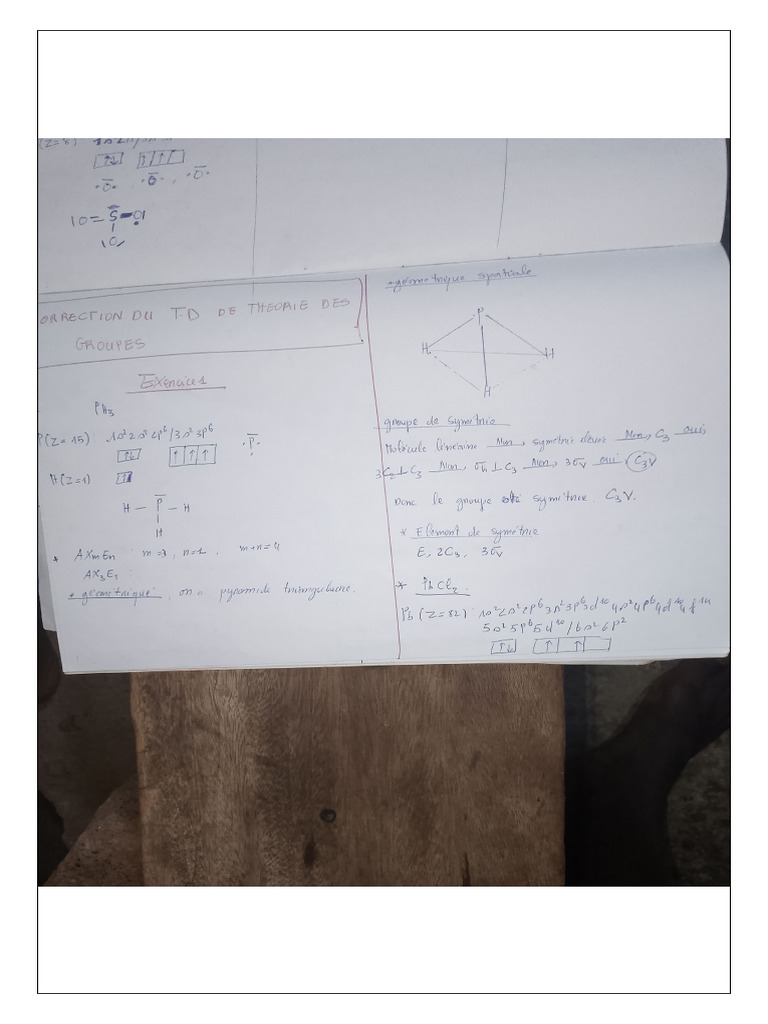 (Z=8)
·O̅· , ·O̅· , ·O̅·
|O=S̅-O̅|
|
|O|
CORRECTION DU T-D DE THEORIE DES
GROUPES
Exercice 1
PH₃
P(Z=15) : 1s²2s²2p⁶/3s²3p⁶
·P̅·
H(Z=1)
H — P̅ — H
|
H
* AXmEn : m=3, n=1. m+n=4
AX₃E₁ :
* géométrique, on a pyramide triangulaire.
* géométrique spatiale
P
H H
H
groupe de symétrie
Molécule linéaire Non, symétrie élevé Non, C₃ oui,
3C₂⊥C₃ Non, σh⊥C₃ Non, 3σv oui C₃V
Donc le groupe symétrie C₃V.
* Element de symétrie
E, 2C₃, 3σv
* PbCl₂.
Pb(Z=82) : 1s²2s²2p⁶3s²3p⁶3d¹⁰4s²4p⁶4d¹⁰4f¹⁴
5s²5p⁶5d¹⁰/6s²6p²